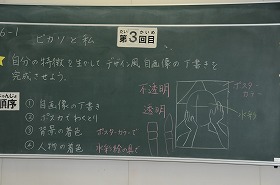 6-1
ピカソと私
だい かいめ
第3回目
自分の特徴を生かしてデザイン風自画像の下書きを
完成させよう。
じゅんじょ
順序
① 自画像の下書き
② ポスカでわくどり
③ 背景の着色 ポスターカラーで
④ 人物の着色 水彩絵の具で
不透明
透明
ポスターカラー
水彩